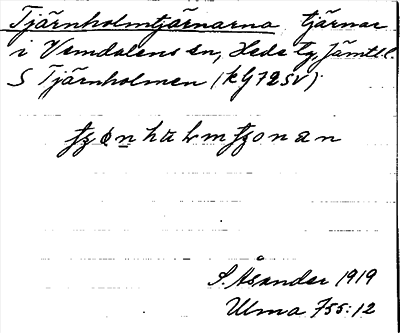 Tjärnholmtjärnarna tjärnar
i Vemdalens sn, Hede tg, Jämtl. l.
S Tjärnholmen (kg 72 SV)
S. Åsander 1919
Ulma 755:12